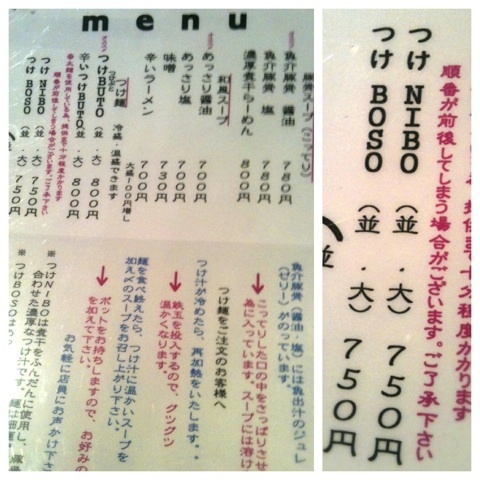 menu
豚骨スープ(こってり)
魚介豚骨 醤油 780円
魚介豚骨 塩 780円
濃厚煮干らーめん 800円
和風スープ
あっさり醤油 700円
あっさり塩 700円
味噌 730円
辛いラーメン 700円
つけ麺 冷盛・温盛できます
大盛100円増し
つけBUTO(並・大)800円
辛いつけBUTO(並・大)800円
順番が前後してしまう場合がございます。ご了承下さい
つけ NIBO (並・大)750円
つけ BOSO (並・大)750円
魚介豚骨(醤油・塩)には魚出汁のジュレ
(ゼリー)がのっています。
こってりした口の中をさっぱりさせ
為に入っています。スープには溶け
つけ麺をご注文のお客様へ
つけ汁が冷めたら、再加熱をいたします。
鉄玉を投入するので、グツグツ
温かくなります。
麺を食べ終えたら、つけ汁に温かいスープを
加え〆のスープをお召し上がり下さい。
ポットをお持ちしますので、お好みの
を加えて下さい。
お気軽に店員にお声かけ下さ
※つけNIBOは煮干をふんだんに使用し、
合わせた濃厚なつけ汁です。
※つけBOSOは
程度かかります
順番が前後してしまう場合がございます。ご了承下さい
つけ NIBO (並・大)750円
つけ BOSO (並・大)750円